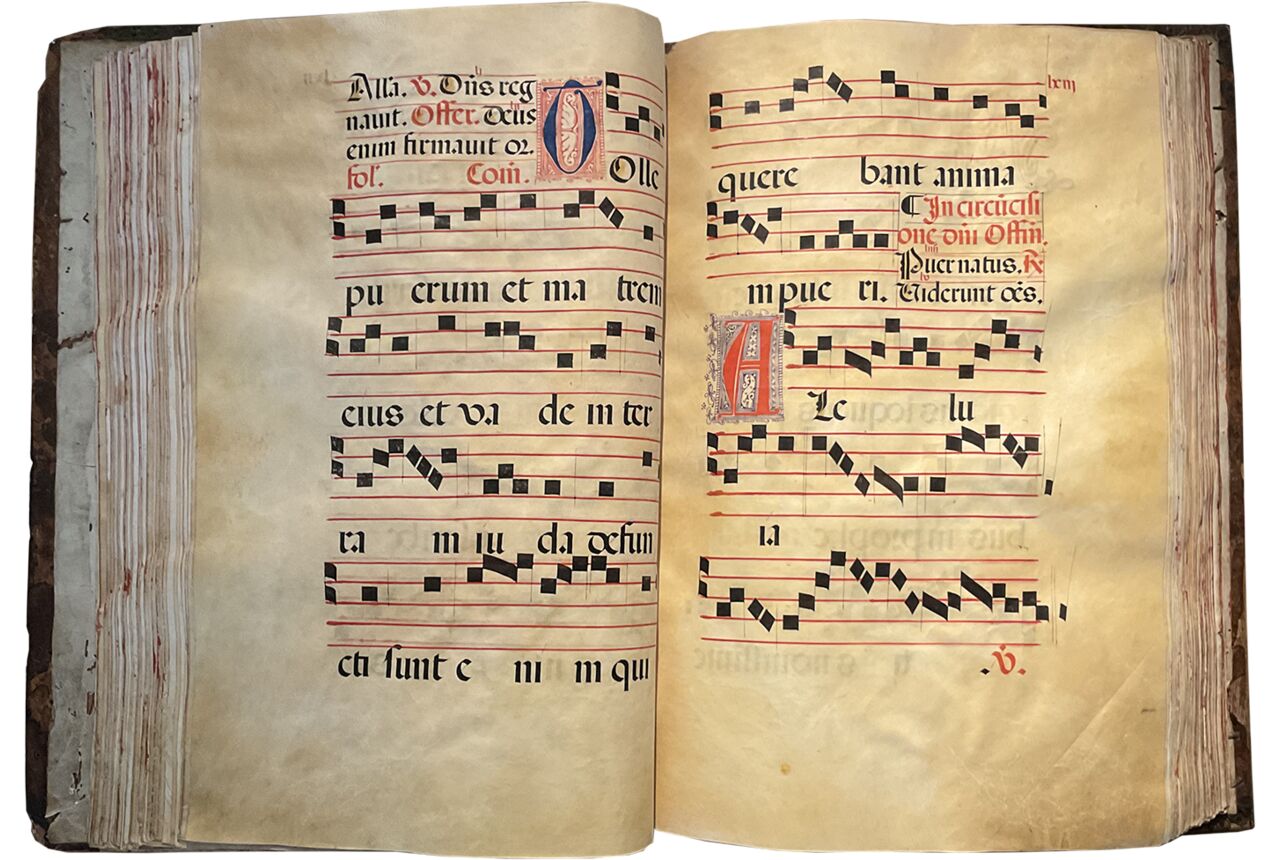 Alla. V. Dñs reg
nauit. Offer. Deus
enim firmauit or.
fol. Com. TOlle
pu erum et ma trem
eius et va de in ter
ra m iu da defun
cti sunt e ni m qui
lxiij
quere bant anima
m pue ri.
¶ In circũcisi
one dñi Offm.
Puer natus. R
Uiderunt oẽs.
A Le lu
ia
.V.